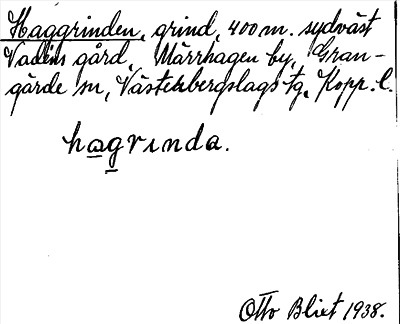 Haggrinden, grind, 400 m. sydväst
Vadens gård, Märrhagen by, Gran-
gärde sn, Västerbergslags tg, Kopp. l.
hagrinda.
Otto Blixt 1938.